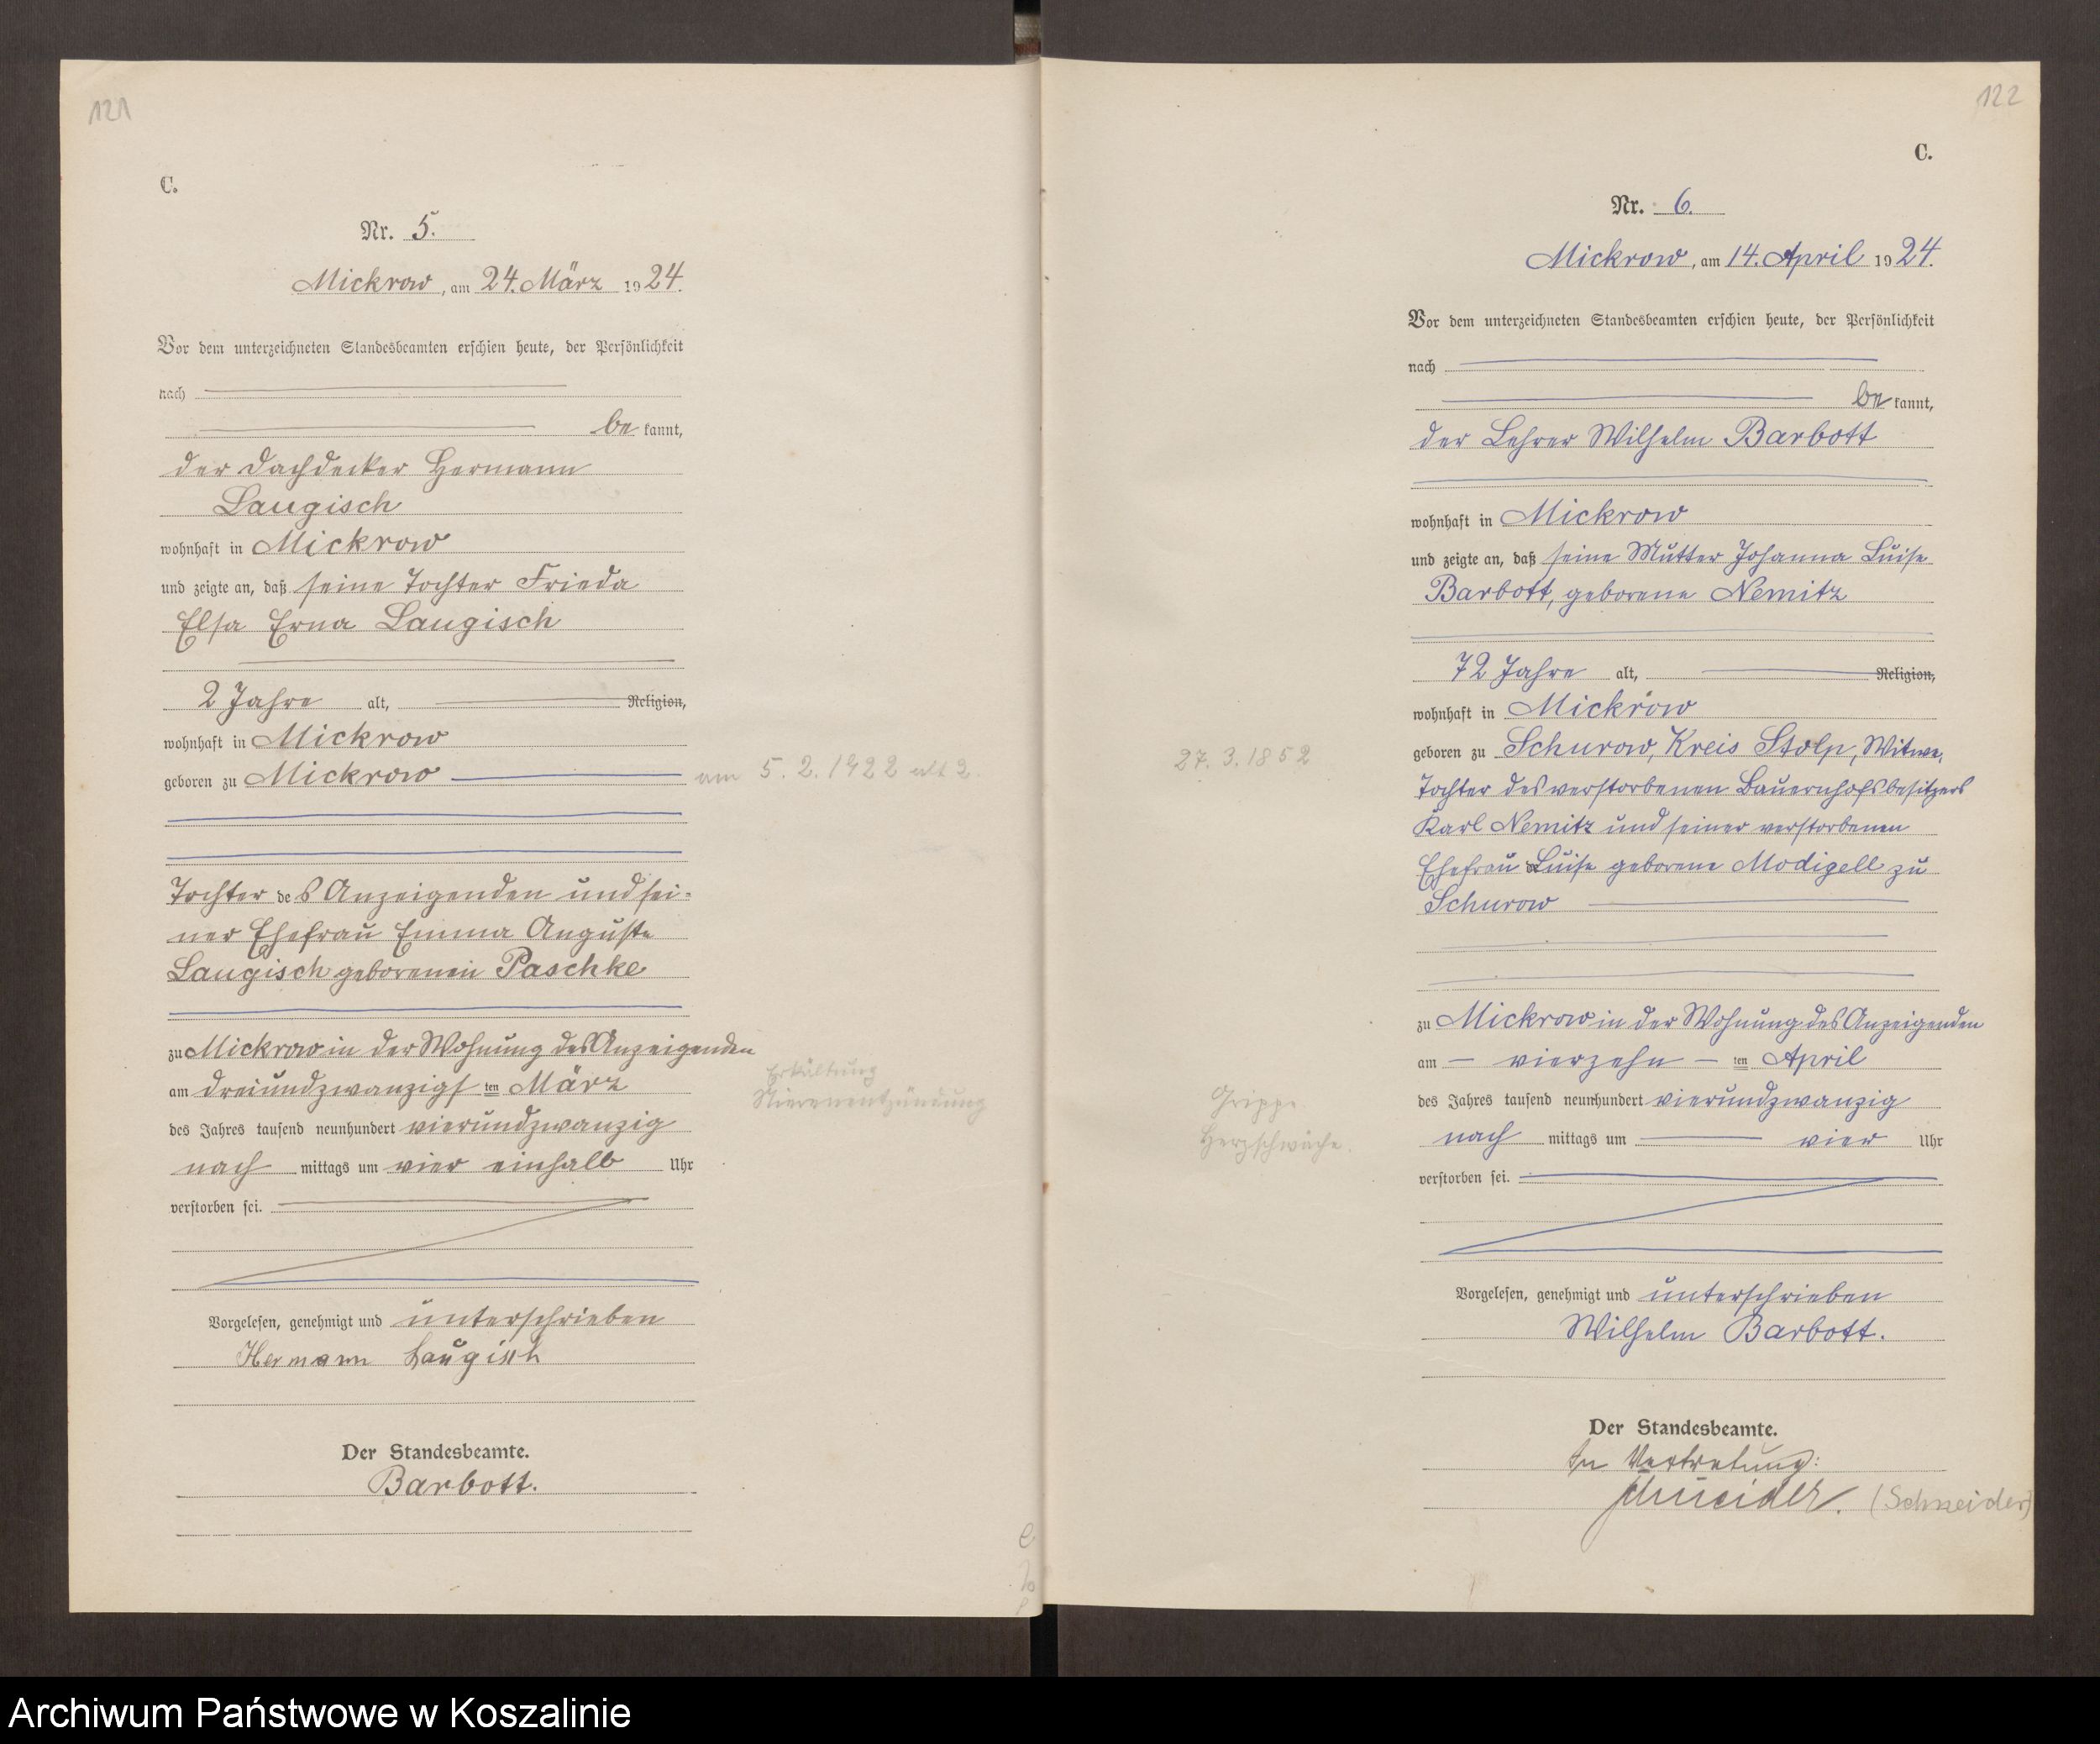 121
C.
Nr. 5.
Mickrow, am 24. März 1924.
Vor dem unterzeichneten Standesbeamten erschien heute, der Persönlichkeit
nach
be kannt,
der Dachdecker Hermann
Laugisch
wohnhaft in Mickrow
und zeigte an, daß seine Tochter Frieda
Elsa Erna Laugisch
2 Jahre alt, Religion,
wohnhaft in Mickrow
geboren zu Mickrow
am 5.2.1922 alt 2.
Tochter des Anzeigenden und sei-
ner Ehefrau Emma Auguste
Laugisch geborenen Paschke
zu Mickrow in der Wohnung des Anzeigenden
am dreiundzwanzigsten März
des Jahres tausend neunhundert vierundzwanzig
nach mittags um vier einhalb Uhr
verstorben sei.
Erkältung
Nierenentzündung
Vorgelesen, genehmigt und unterschrieben
Hermann Laugisch
Der Standesbeamte.
Barbott.
122
C.
Nr. 6.
Mickrow, am 14. April 1924.
Vor dem unterzeichneten Standesbeamten erschien heute, der Persönlichkeit
nach
be kannt,
der Lehrer Wilhelm Barbott
wohnhaft in Mickrow
und zeigte an, daß seine Mutter Johanna Luise
Barbott, geborene Nemitz
72 Jahre alt, Religion,
wohnhaft in Mickrow
geboren zu Schurow, Kreis Stolp, Witwe,
27.3.1852
Tochter des verstorbenen Bauernhofsbesitzers
Karl Nemitz und seiner verstorbenen
Ehefrau Luise geborene Modigell zu
Schurow
zu Mickrow in der Wohnung des Anzeigenden
am — vierzehn — ten April
des Jahres tausend neunhundert vierundzwanzig
nach mittags um vier Uhr
verstorben sei.
Grippe
Herzschwäche.
Vorgelesen, genehmigt und unterschrieben
Wilhelm Barbott.
Der Standesbeamte.
In Vertretung:
Schneider. (Schneider)
Archiwum Państwowe w Koszalinie